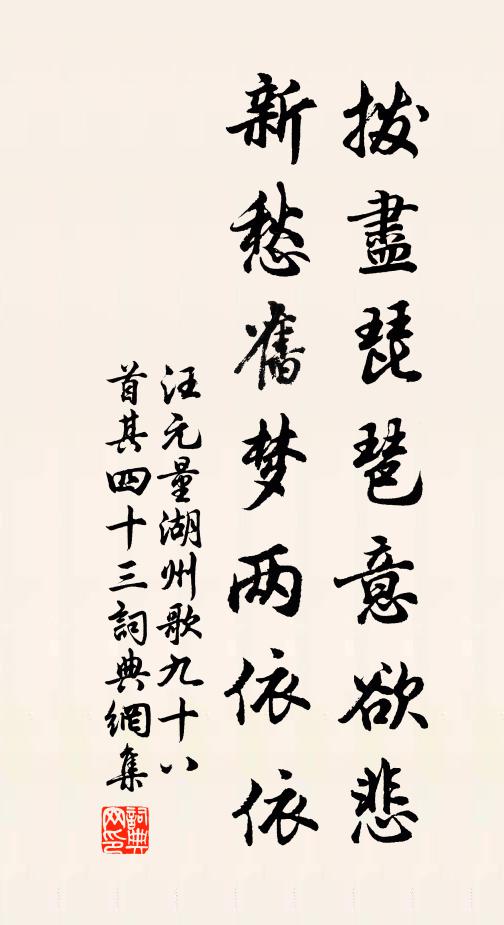 拨盡琵琶意欲悲
新愁舊梦两依依
汪元量湖州歌九十八
首其四十三詞典網集
詞典
网印